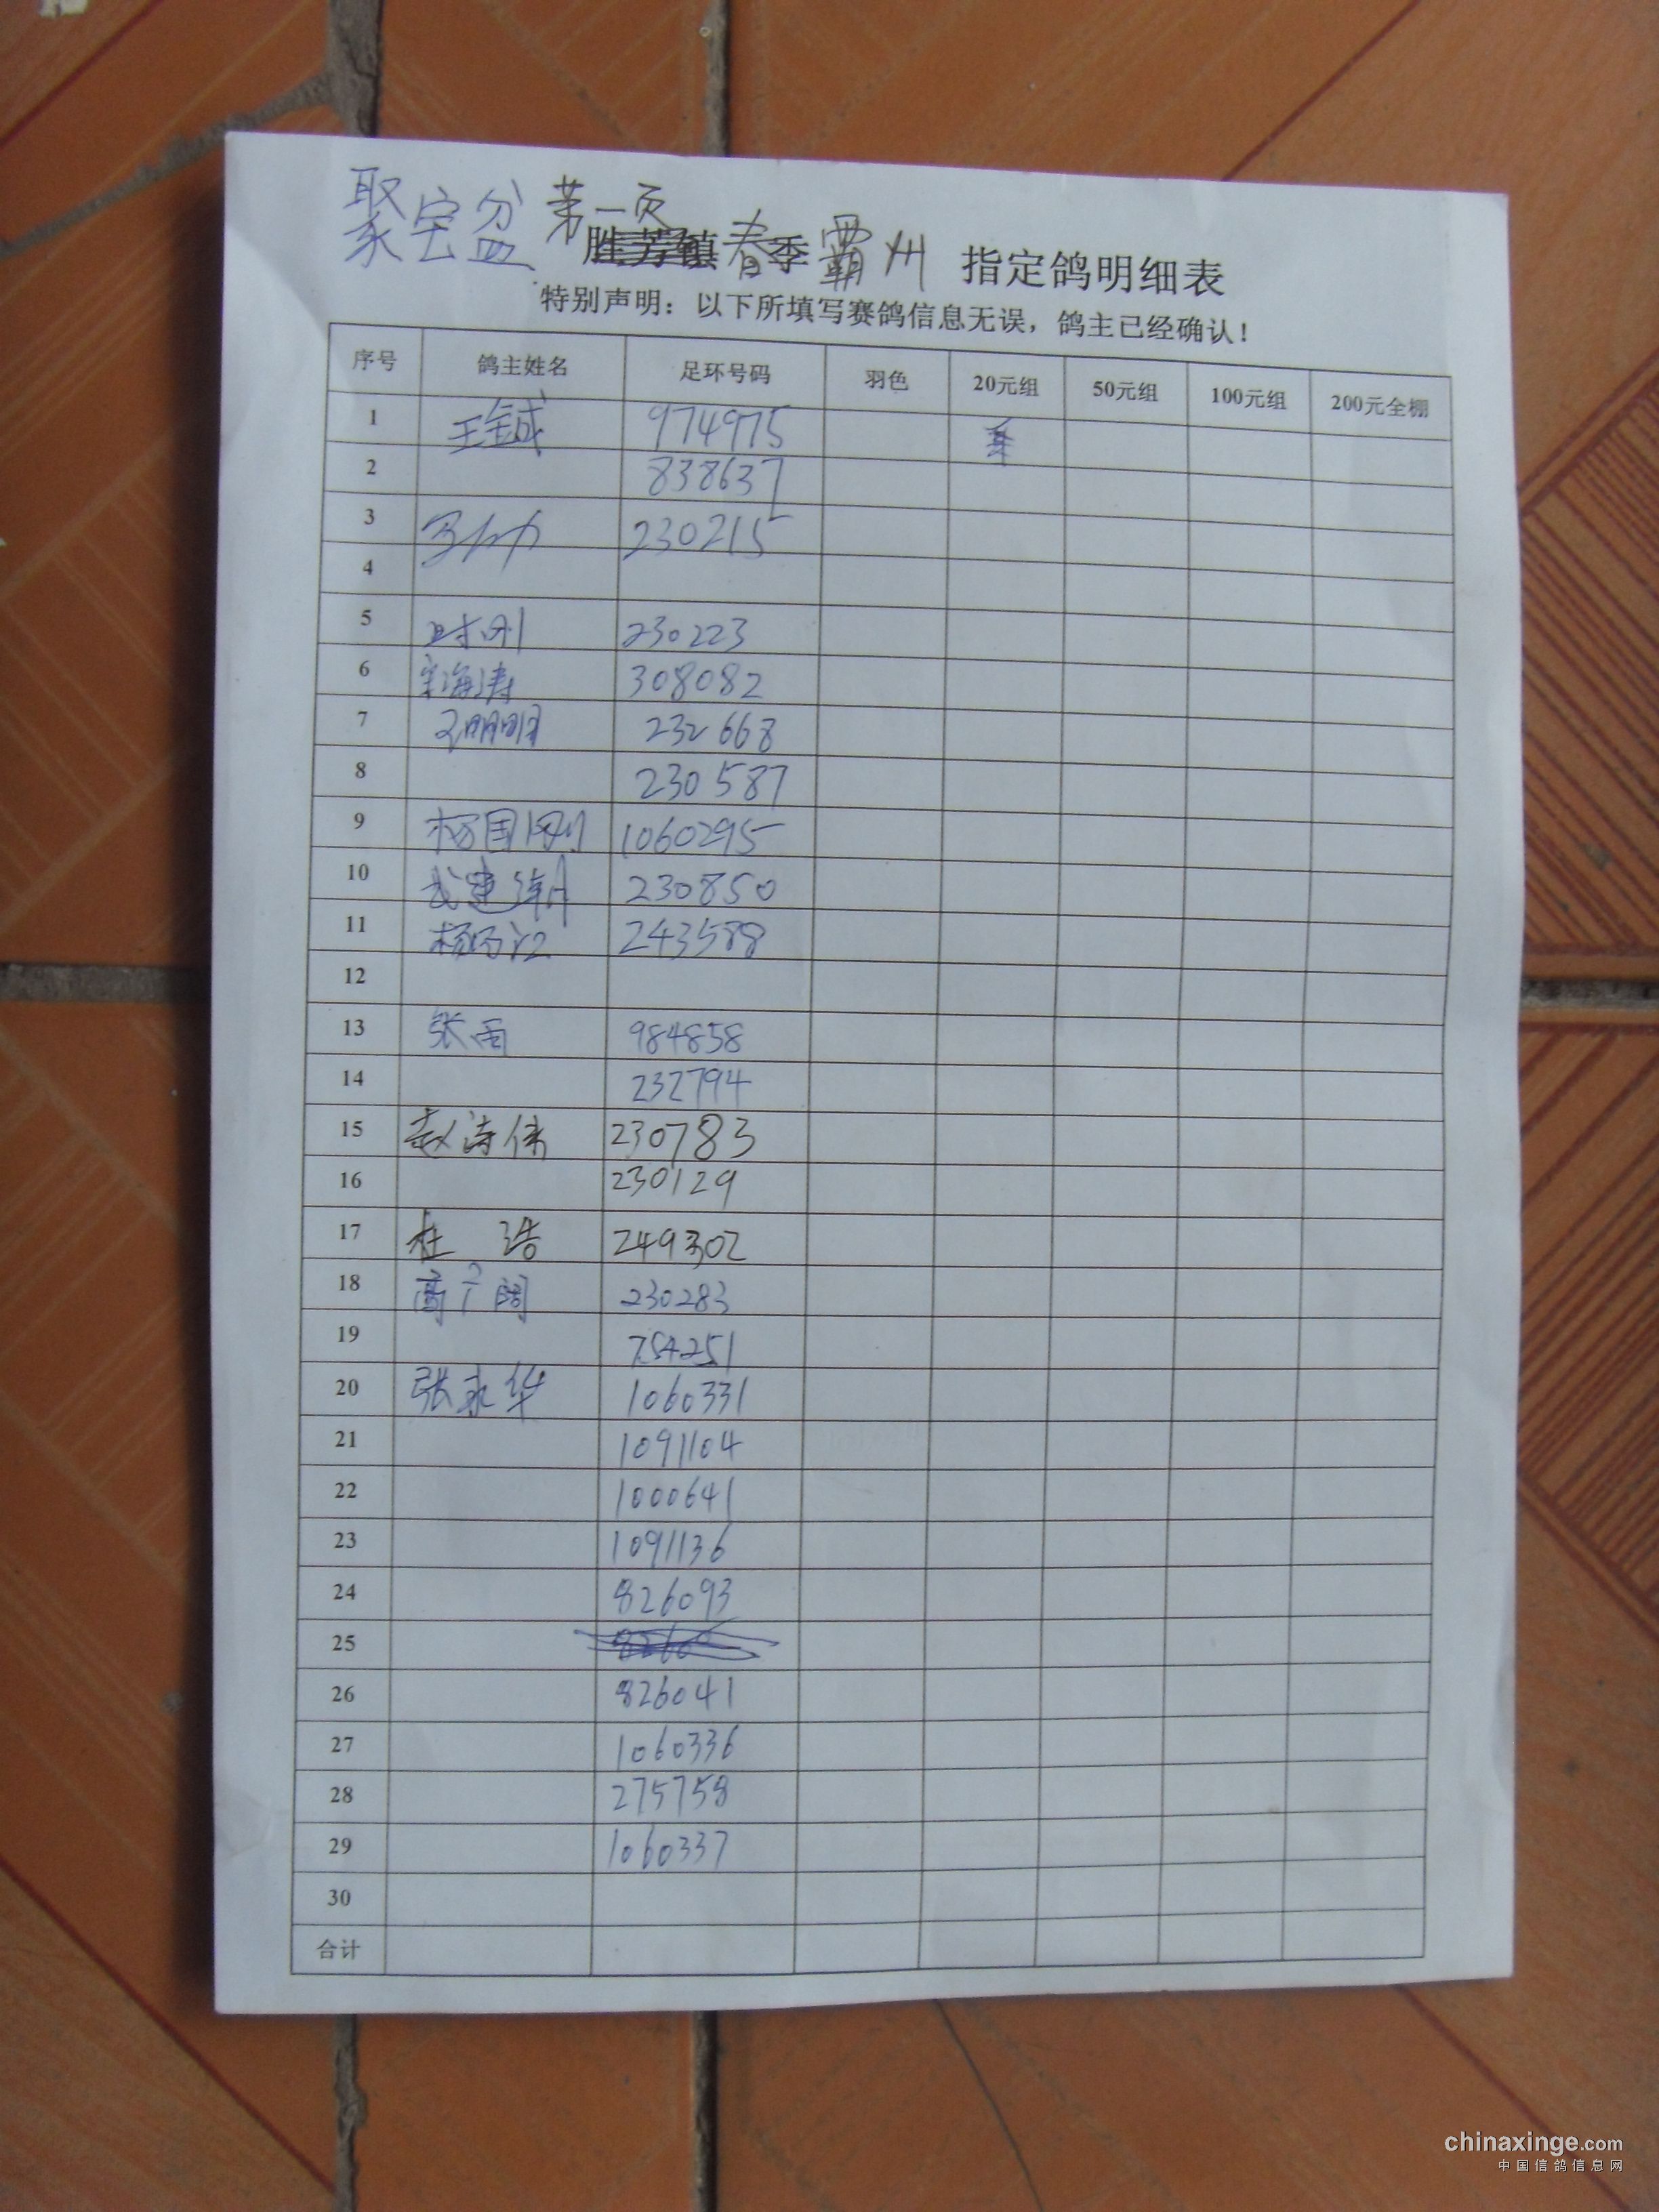 聚宝盆 第一页
春季霸州 指定鸽明细表
特别声明：以下所填写赛鸽信息无误，鸽主已经确认！
序号 鸽主姓名 足环号码 羽色 20元组 50元组 100元组 200元全棚
1 王金成 974975
2 838637
3 230215
4
5 时刚 230223
6 宋海涛 308082
7 232668
8 230587
9 杨国刚 1060295
10 230850
11 243588
12
13 张雨 984858
14 232794
15 赵涛伟 230783
16 230129
17 杜浩 249302
18 高广阔 230283
19 754251
20 张永华 1060331
21 1091104
22 1000641
23 1091136
24 826093
25
26 826041
27 1060336
28 275758
29 1060337
30
合计
chinaxinge.com
中国信鸽信息网